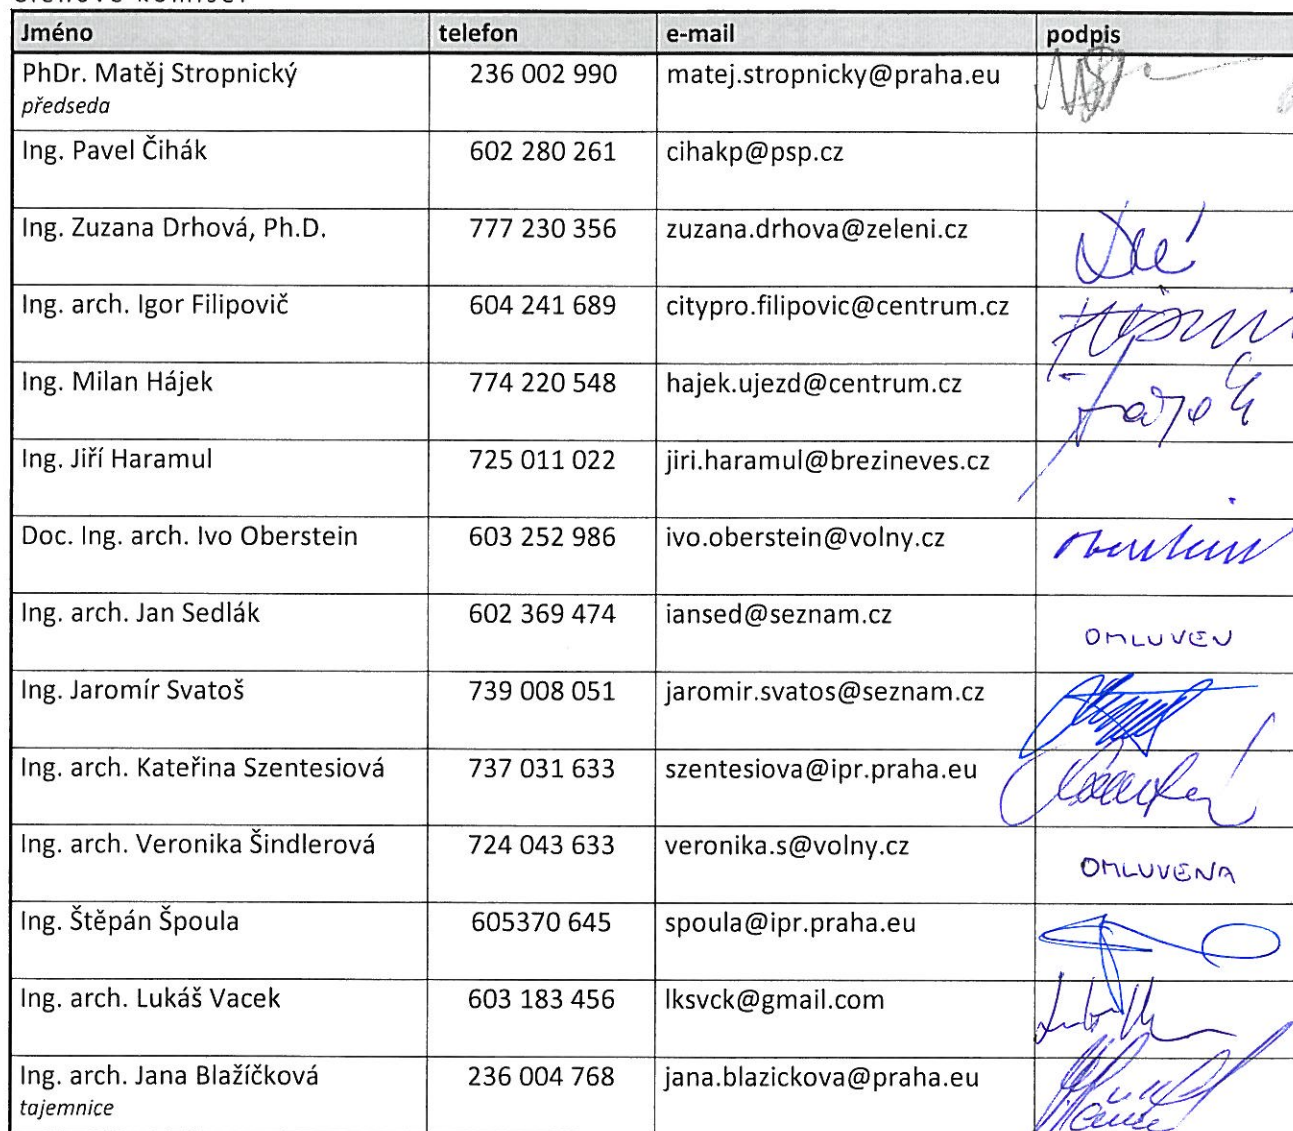 členové komise:
Jméno telefon e-mail podpis
PhDr. Matěj Stropnický 236 002 990 matej.stropnicky@praha.eu
předseda
Ing. Pavel Čihák 602 280 261 cihakp@psp.cz
Ing. Zuzana Drhová, Ph.D. 777 230 356 zuzana.drhova@zeleni.cz
Ing. arch. Igor Filipovič 604 241 689 citypro.filipovic@centrum.cz
Ing. Milan Hájek 774 220 548 hajek.ujezd@centrum.cz Hájek
Ing. Jiří Haramul 725 011 022 jiri.haramul@brezineves.cz
Doc. Ing. arch. Ivo Oberstein 603 252 986 ivo.oberstein@volny.cz Oberstein
Ing. arch. Jan Sedlák 602 369 474 iansed@seznam.cz OMLUVEN
Ing. Jaromír Svatoš 739 008 051 jaromir.svatos@seznam.cz
Ing. arch. Kateřina Szentesiová 737 031 633 szentesiova@ipr.praha.eu
Ing. arch. Veronika Šindlerová 724 043 633 veronika.s@volny.cz OMLUVENA
Ing. Štěpán Špoula 605370 645 spoula@ipr.praha.eu
Ing. arch. Lukáš Vacek 603 183 456 lksvck@gmail.com
Ing. arch. Jana Blažíčková 236 004 768 jana.blazickova@praha.eu
tajemnice